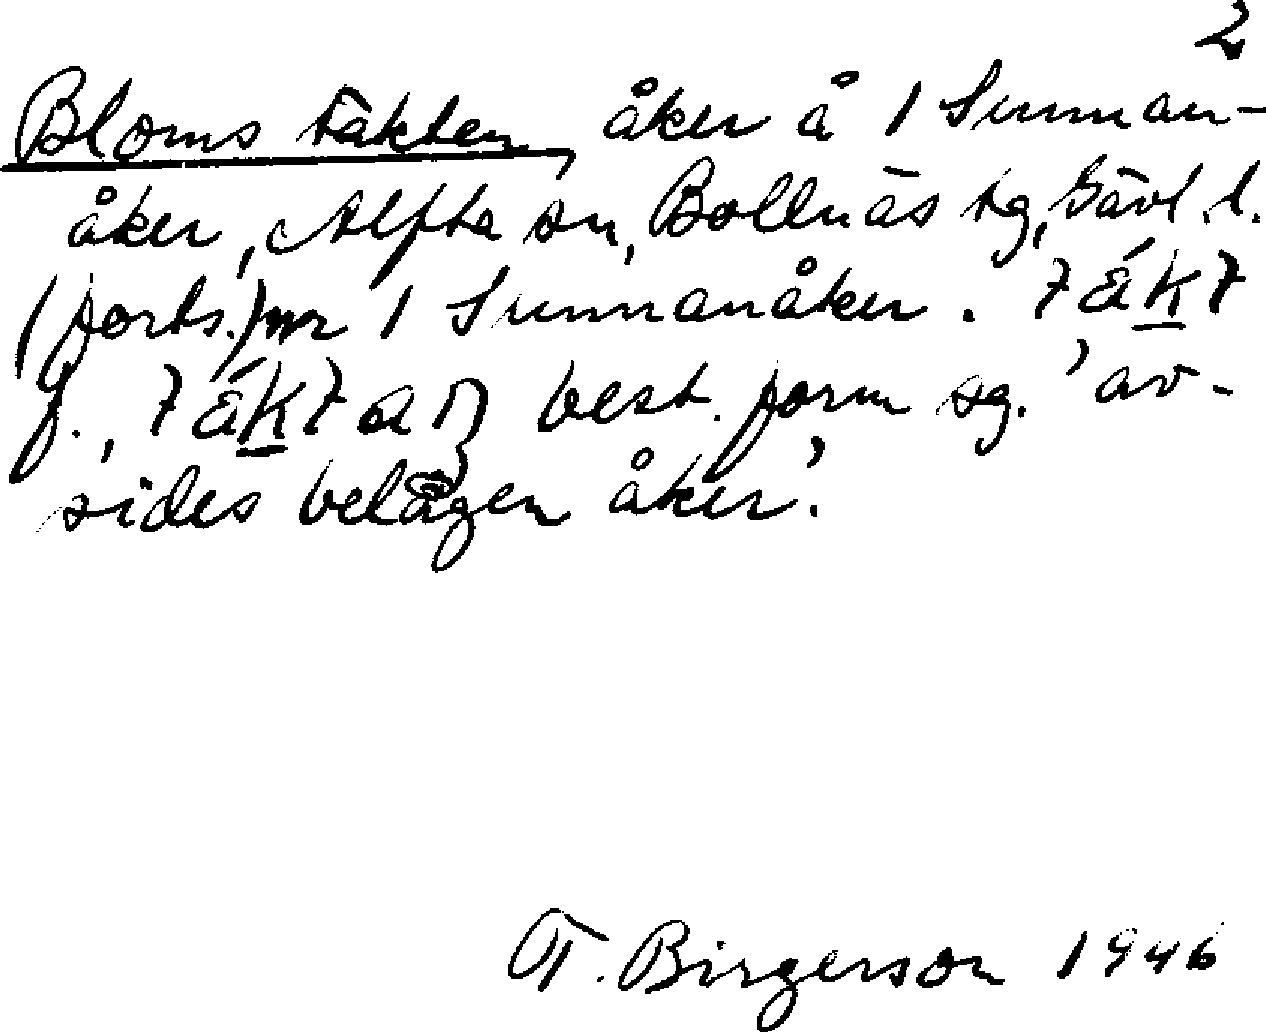 2
Bloms täkten, åker å 1 Sunnan-
åker, Alfta sn, Bollnäs tg, Gävl. l.
(forts.) nr 1 Sunnanåker.
f., best. form sg. 'av-
sides belägen åker'.
T. Birgerson 1946